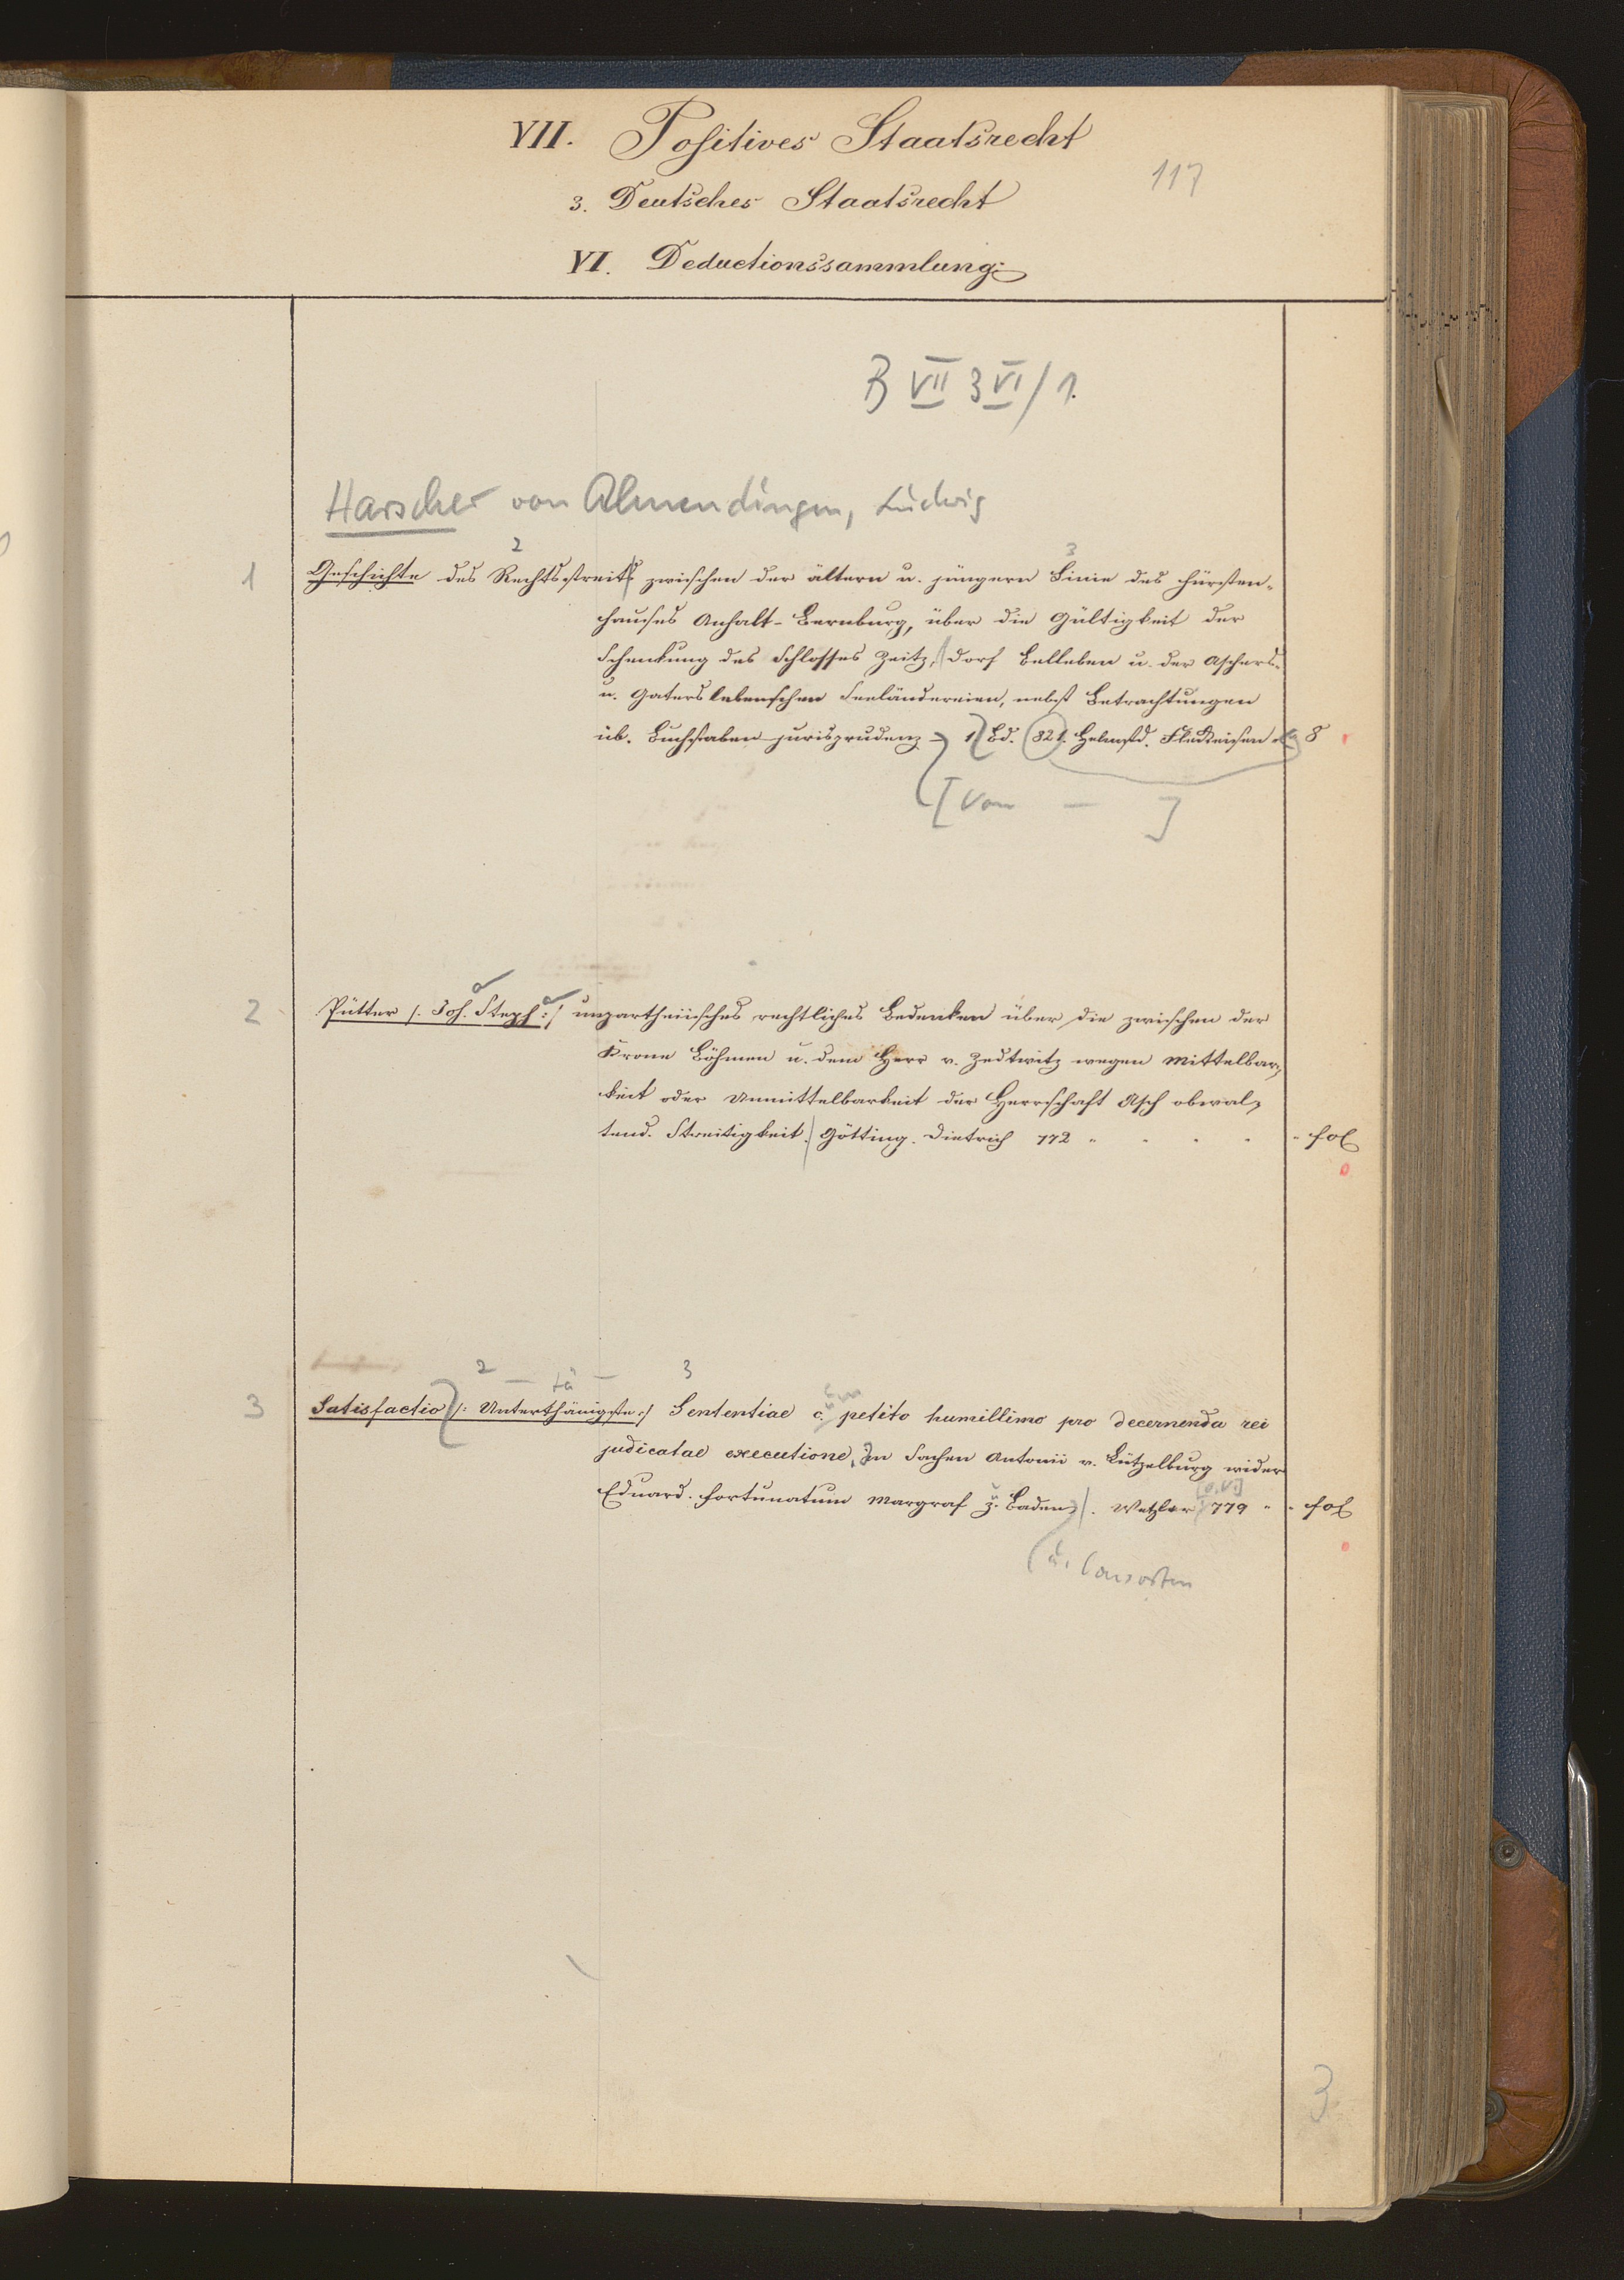 VII. Positives Staatsrecht
117
3. Deutsches Staatsrecht
VI. Deductionssammlung
B VII 3 VI / 1.
Harscher von Almendingen, Ludwig
2 3
1 Geschichte des Rechtsstreits zwischen der ältern u. jüngern Linie des Fürsten-
hauses Anhalt-Bernburg, über die Gültigkeit der
Schenkung des Schlosses Zeitz, Dorf Belleben u. der Aschers-
u. Gaterslebenschen Seeländereien, nebst Betrachtungen
üb. Buchstaben-jurisprudenz 1 Bd. 821. Helmstd. Fleckeisen 8
[Von — ]
2 Pütter /: Joh. Steph :/ unpartheiisches rechtliches Bedenken über die zwischen der
Krone Böhmen u. dem Herr v. Zedtwitz wegen Mittelbar-
keit oder Unmittelbarkeit der Herrschaft Asch obwal-
tend. Streitigkeit. Götting. Dietrich 772 " fol
2 — tä — 3
3 Satisfactio /: Unterthänigste :/ Sententiae c. petito humillimo pro decernenda rei
judicatae executione, In Sachen Antonii v. Lützelburg wider
[o.V.]
Eduard. Fortunatum Margraf z. Baden. Wetzlar 779 " fol
u. Consorten
3